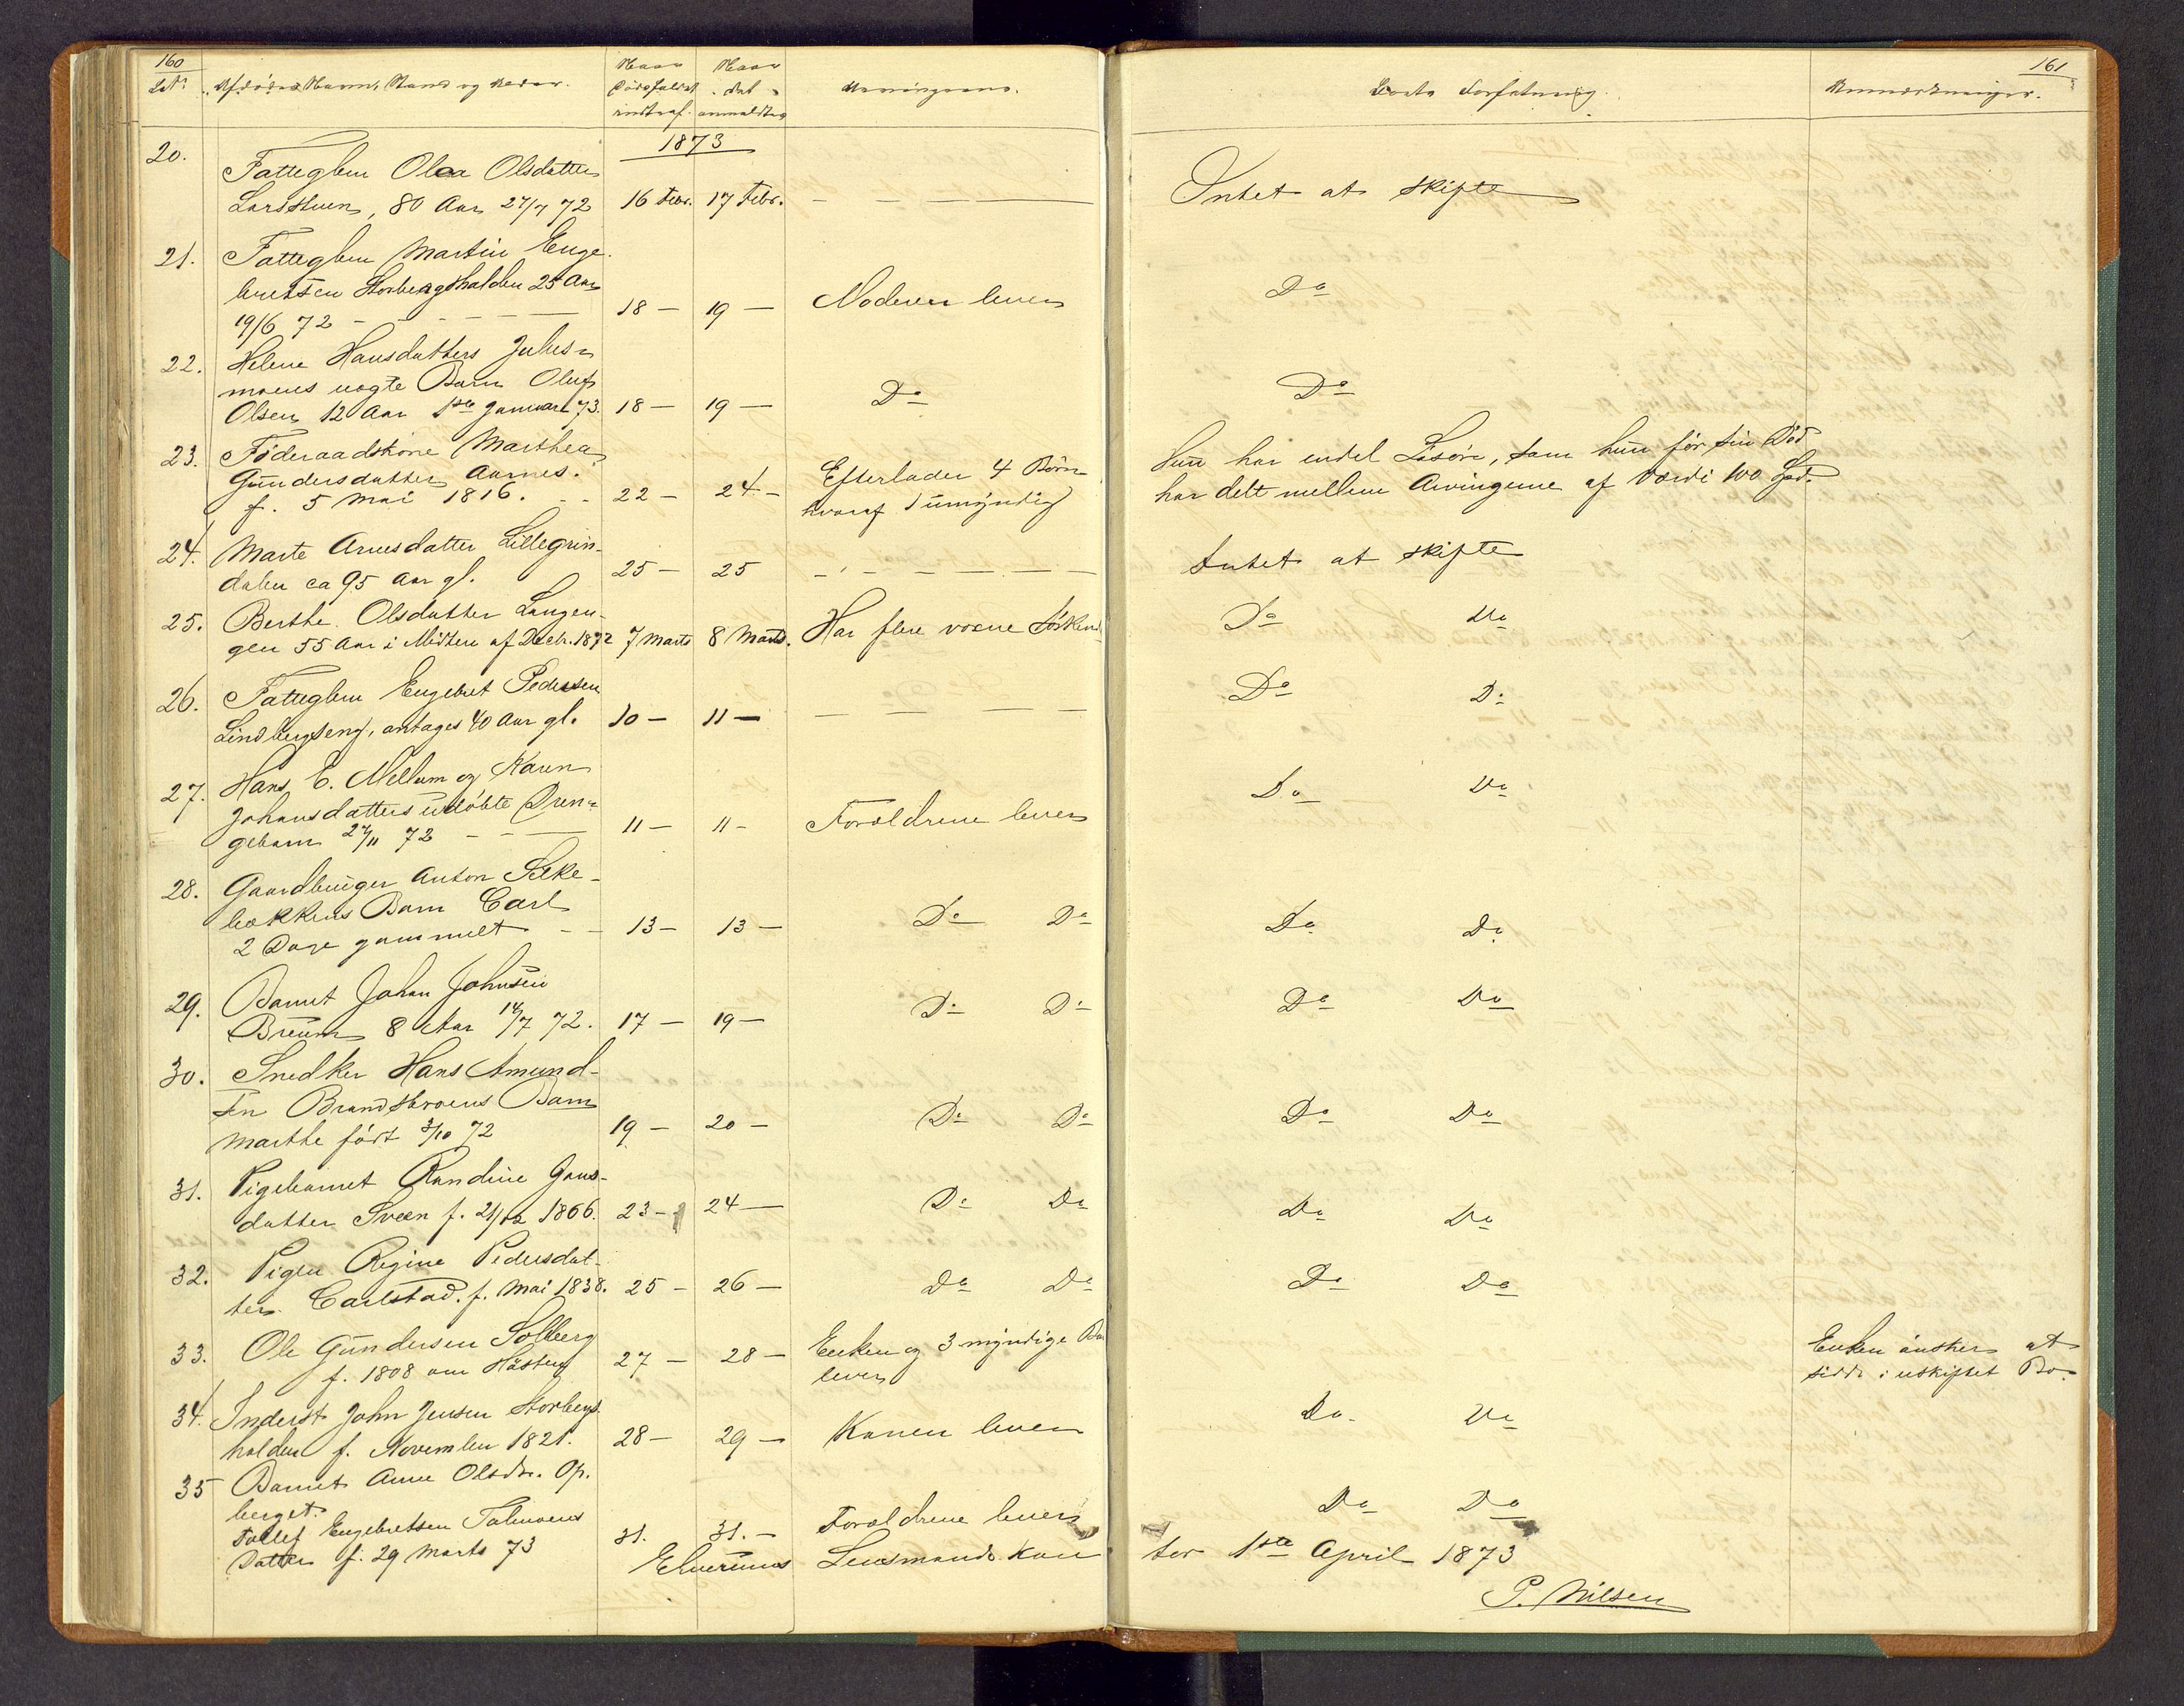 160
Lb.No. Afdødes Navn, Stand og Alder. Naar Dødsfaldet indtraf. Naar det anmeldtes Arvingerne.
1873
20. Fatteglem Olea Olsdatter
Larsstuen, 80 Aar 27/7 72 16 Febr. 17 Febr. — — —
21. Fatteglem Martin Enge-
bretsen Storbergshalden 25 Aar
19/6 72 — — — 18 — 19 — Moderen lever
22. Helene Hansdatters Julus-
moens uægte Barn Oluf
Olsen 12 Aar 1ste Januar 73. 18 — 19 — Do
23. Føderaadskone Marthea
Gundersdatter Aarnes.
f. 5 Mai 1816. - - 22 — 24 — Efterlader 4 Børn
hvoraf 1 umyndig
24. Marte Arnesdatter Lillegrin-
dalen ca 95 Aar gl. 25 — 25 — — — —
25. Berthe Olsdatter Langen-
gen 55 Aar i Midten af Decbr. 1872 7 Marts 8 Marts. Har flere voxne Søskend
26. Fatteglem Engebret Pedersen
Lindbergseng, antages 40 Aar gl. 10 — 11 — — — — —
27. Hans E. Mellum og Karen
Johansdatters udøbte Dren-
gebarn 27/11 72 — — 11 — 11 — Forældrene lever
28. Gaardbruger Anton Silke-
bækkens Barn Carl
2 Dage gammelt - - 13 — 13 — Do Do
29. Barnet Johan Johnsen
Breum 8 Aar 14/7 72. 17 — 19 — Do Do
30. Snedker Hans Amund-
sen Brandstvoens Barn
Marthe født 3/10 72 19 — 20 — Do Do
31. Pigebarnet Randine Gaus-
datter Sveen f. 21/12 1866. 23 — 24 — Do Do
32. Pigen Regine Pedersdat-
ter Carlstad. f. Mai 1838. 25 — 26 — Do Do
33. Ole Gundersen Solberg
f. 1808 om Høsten 27 — 28 — Enken og 3 myndige Bø
lever
34. Inderst John Jensen Storbergs
halden f. November 1821. 28 — 29 — Konen lever
35 Barnet Anne Olsdr. Op-
berget.
Tollef Engebretsen Talmoens
Datter f. 29 Marts 73 31. 31. — Forældrene lever
Elverums Lensmands Kon
161
Boets Forfatning. Anmærkninger.
Intet at skifte
Do
Do
Hun har endel Løsøre, som hun før sin Død
har delt mellem Arvingerne af Værdi 100 Spd.
Intet at skifte
Do Do
Do Do
Do Do
Do Do
Do Do
Do Do
Do Do
Do Do
Enken ønsker at
sidde i uskiftet Bo.
Do Do
Do Do
tor 1ste April 1873
P. Nilsen